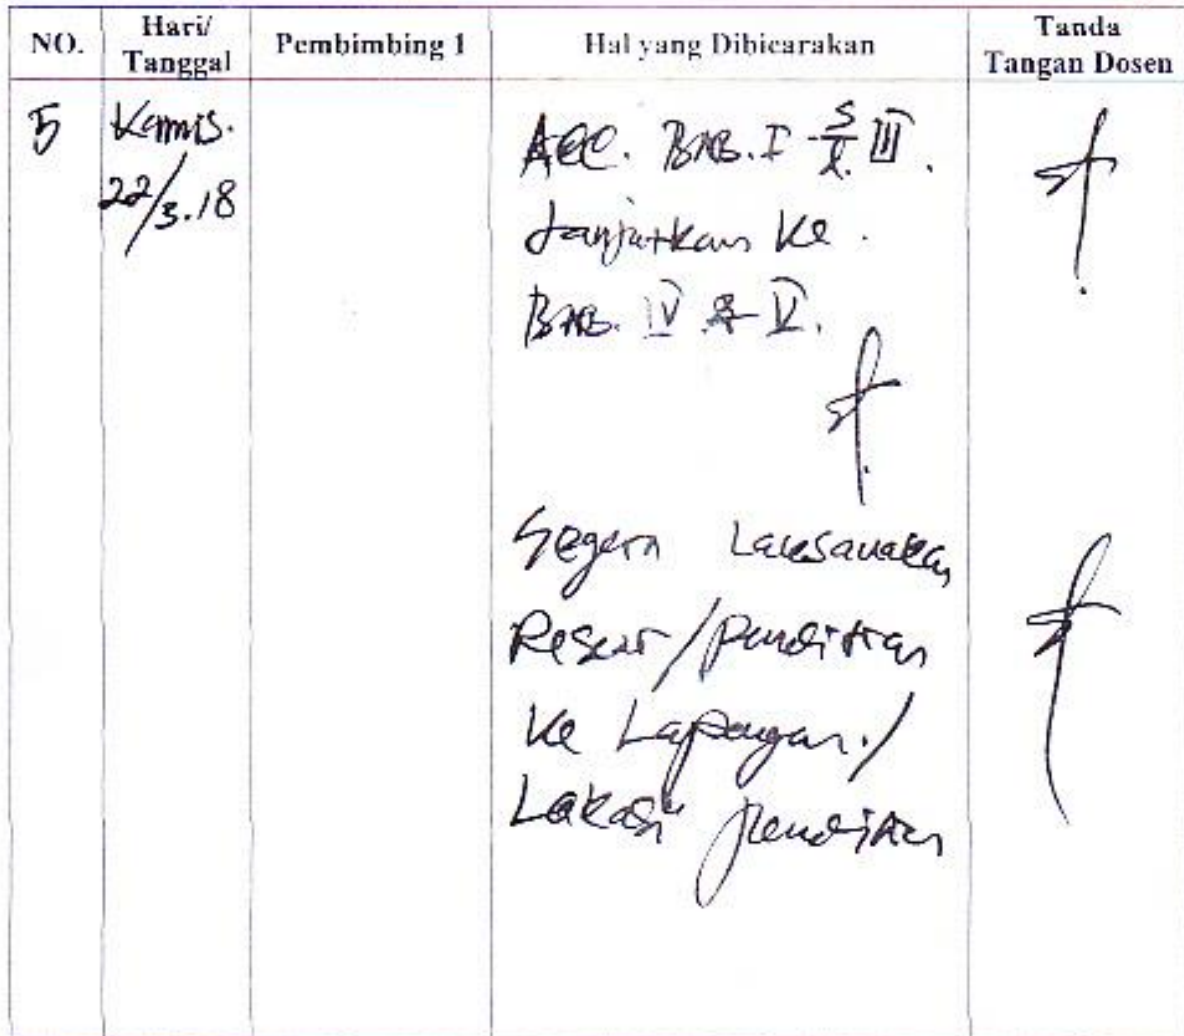 NO. Hari/ Tanggal Pembimbing 1 Hal yang Dibicarakan Tanda Tangan Dosen
5 Kamis. ACC. BAB. I s/d III.
22/3.18 Lanjutkan Ke.
BAB. IV & V.
Segera Laksanakan
Reset/penelitian
Ke Lapangan./
Lokasi penelitian